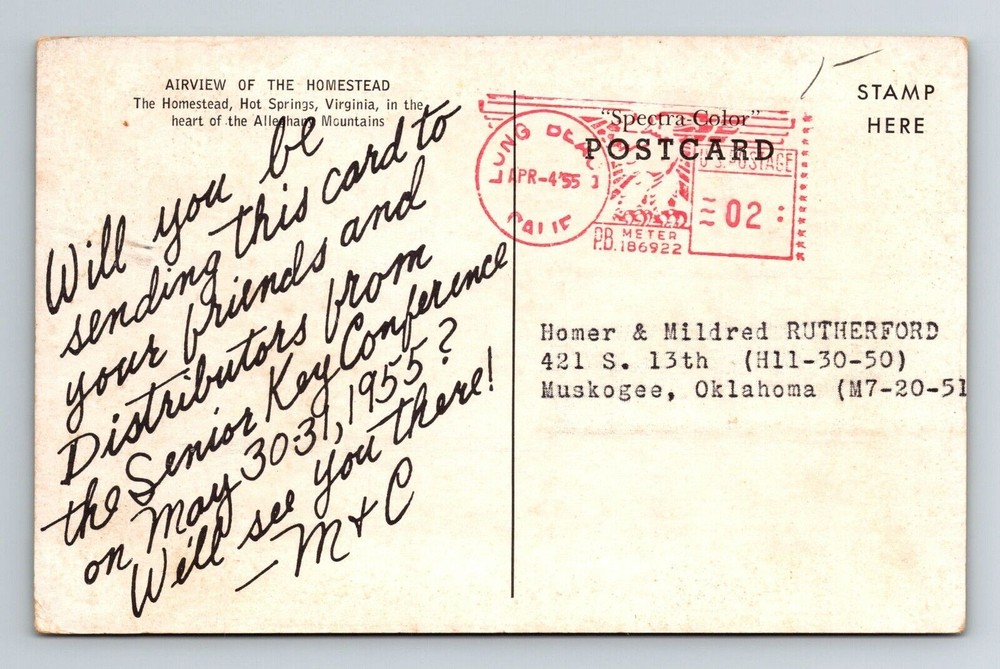 AIRVIEW OF THE HOMESTEAD
The Homestead, Hot Springs, Virginia, in the
heart of the Alleghany Mountains
Will you be
sending this card to
your friends and
Distributors from
the Senior Key Conference
on May 30-31, 1955?
Will see you there!
— M & C
LONG BEACH
APR-4'55
CALIF
"Spectra-Color"
POSTCARD
U.S. POSTAGE
02
P.B. METER
186922
STAMP
HERE
Homer & Mildred RUTHERFORD
421 S. 13th (H11-30-50)
Muskogee, Oklahoma (M7-20-51